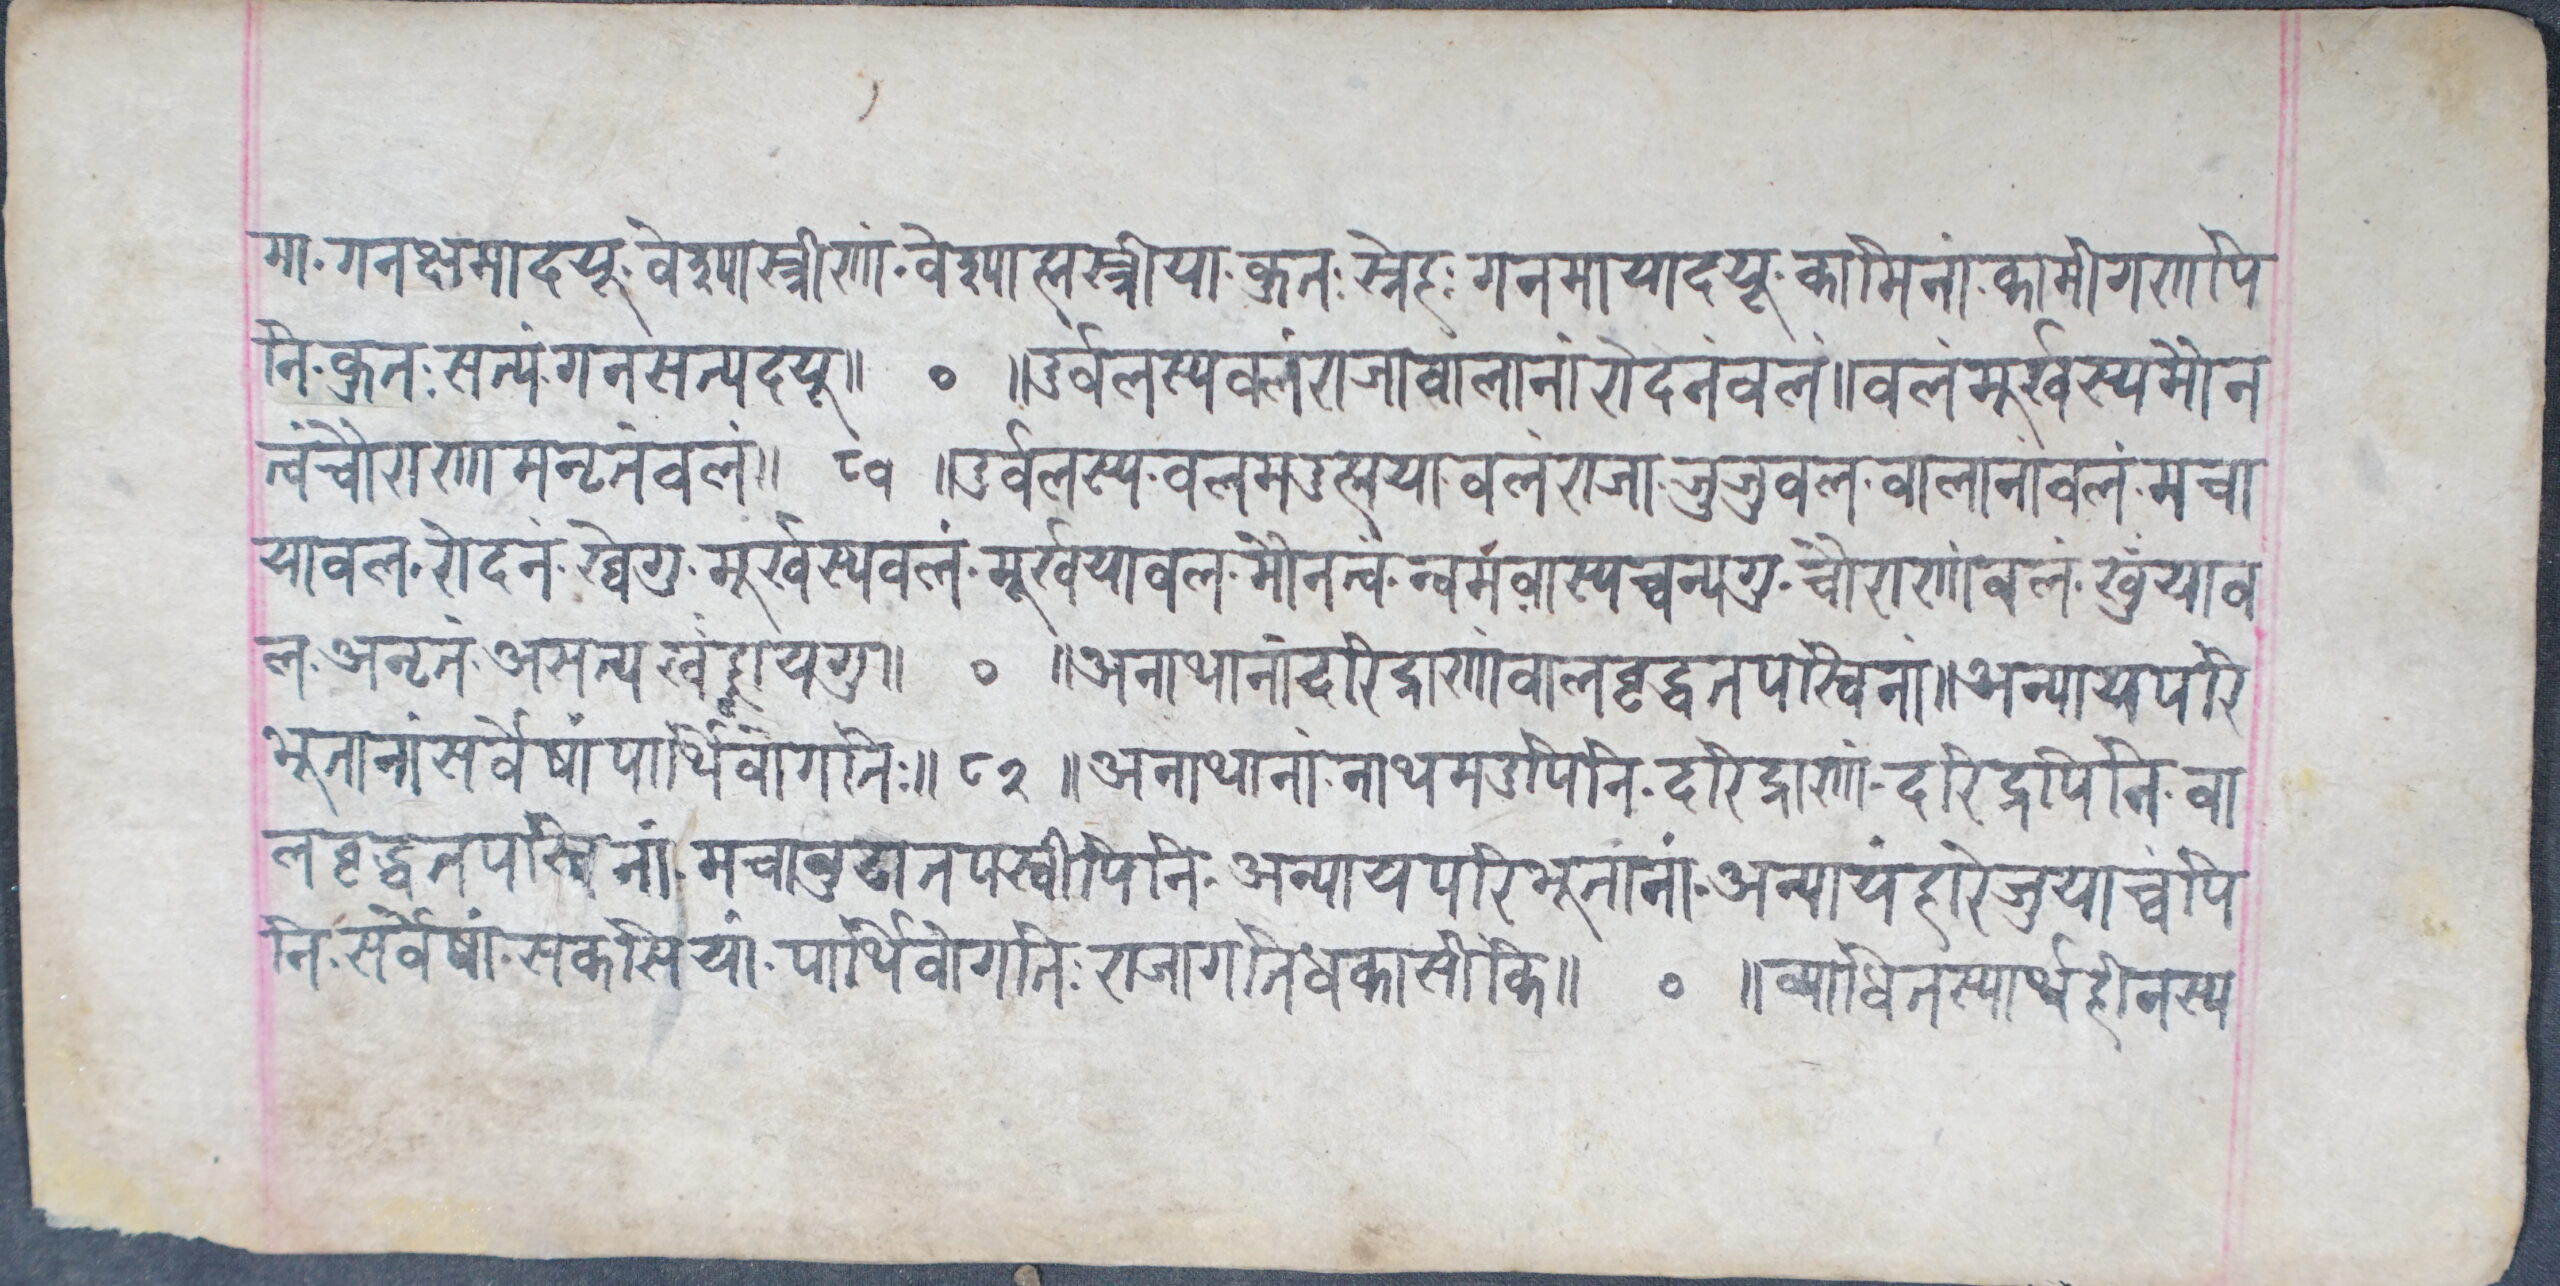 मा · गनक्षमादयू · वेश्यास्त्रीणां · वेश्याह्मस्त्रीया · क्रतः स्नेहः गनमायादयू · कामिनां · कामीगणपि
नि · क्रतः सत्यं · गनसत्यदयू॥ ० ॥दुर्वलस्यवलंराजावालानां रोदनंवलं॥वलंमूर्खस्यमौन
त्वंचौराणामनृतंवलं॥ ८१ ॥दुर्वलस्य · वलमदुह्मया · वलं राजा · जुजुवल · वालानांवलं · मचा
यावल · रोदनं · ख्वेगु · मूर्खस्यवलं · मूर्खयावल · मौनत्वं · न्वमवास्यच्वन्यगु · चौराणांवलं · खुंयाव
ल · अनृतं · असत्य खंह्लायगु॥ ० ॥अनाथानांदरिद्राणांवालवृद्धतपस्विनां॥अन्यायपरि
भूतानांसर्वेषांपार्थिवोगतिः॥ ८२ ॥अनाथानां · नाथमदुपिनि · दरिद्राणां · दरिद्रपिनि · वा
लवृद्धतपस्विनां · मचावुढातपस्वीपिनि · अन्यायपरिभूतानां · अन्यायंहारेजुयाच्वंपि
नि · सर्वेषां · सकसियां · पार्थिवोगतिः राजागतिधकासीकि॥ ० ॥व्याधितस्यार्थहीनस्य